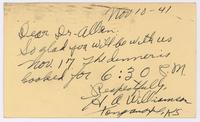 Nov 10-41
Dear Dr. Allen:
So glad you will be with us
Nov. 17 The dinner is
booked for 6:30 P.M.
Respectfully,
H. A. Williamson